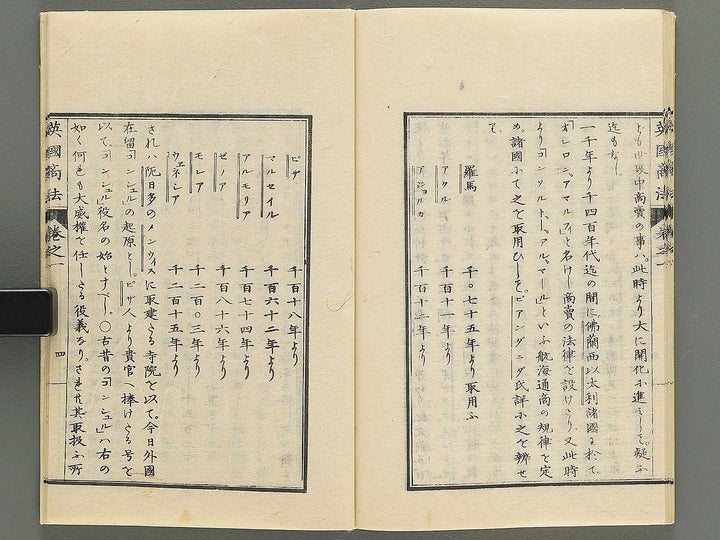 ども世界中商賣の事ハ。此時より大に開化に進ミしこと。疑ふ
迄もなし。
一千年より千四百年代迄の間に佛蘭西以太利諸國に於て。
オレロン。アマルフィと名けし商賣の法律を設けたり。又此時
より「コンソルト、デル、マール」といふ航海通商の規律を定
め。諸國にて之を取用ひしこと。ピアンダニダ氏詳に之を辨せ
て。
羅馬 千〇七十五年より取用ふ
アクル 千百十一年より
マジョルカ 千百十二年より
英國商法 卷之一
ピサ 千百十八年より
マルセイル 千百六十二年より
アルモリア 千百七十四年より
ゼノア 千百八十六年より
モレア 千二百〇三年より
ウェネシア 千二百十五年より
されハ尼日多のメンウィスに取建たる寺院を以て。今日外國
在留コンシュルの起原とし。ピサ人より貴官へ捧けたる号を
以て。コンシュル」役名の始とすべし。〇古昔のコンシュルハ右の
如く何きも大威權を任したる役義なり。されども其取扱ふ所
英國商法 卷之一 四